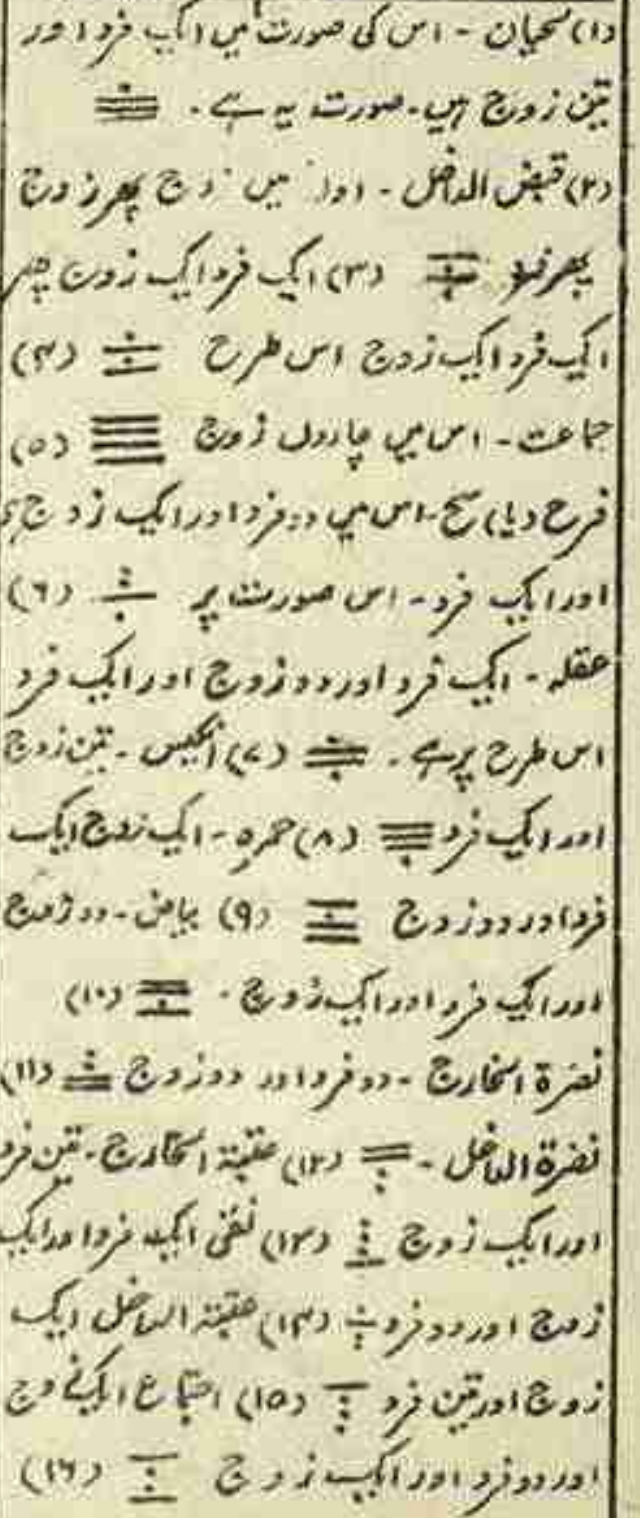 (۱) لحیان - اس کی صورت میں ایک فرد اور
تین زوج ہیں۔ صورت یہ ہے۔
(۲) قبض الداخل - اول میں زوج پھر زوج
پھر فرد (۳) ایک فرد ایک زوج پھر
ایک فرد ایک زوج اس طرح (۴)
جماعت - اس میں چاروں زوج (۵)
فرح (یا) - اس میں دو فرد اور ایک زوج
اور ایک فرد - اس صورت پر (۶)
عقلہ - ایک فرد اور دو زوج اور ایک فرد
اس طرح پر ہے۔ (۷) انکیس - تین زوج
اور ایک فرد (۸) حمرہ - ایک زوج ایک
فرد اور دو زوج (۹) بیاض - دو زوج
اور ایک فرد اور ایک زوج - (۱۰)
نصرۃ الخارج - دو فرد اور دو زوج (۱۱)
نصرۃ الداخل - (۱۲) عتبۃ الخارج - تین فرد
اور ایک زوج (۱۳) نقی ایک فرد اور ایک
زوج اور دو فرد (۱۴) عتبۃ الداخل ایک
زوج اور تین فرد (۱۵) اجتماع ایک زوج
اور دو فرد اور ایک زوج (۱۶)